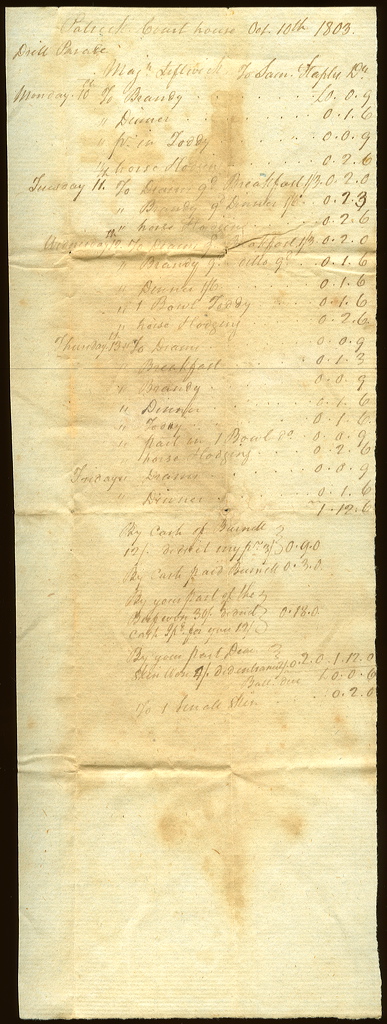 Patrick Court house Oct. 10th 1803.
Drill Parade
Majr. Leftwich To Sam. Staples Dr.
Monday 10th To Brandy . . . . £0.0.9
" Dinner . . . . 0.1.6
" pt. in Toddy . . . . 0.0.9
" horse . . . . 0.2.6
Tuesday 11th To Dram 9d Breakfast 1/3 0.2.0
" Brandy 9 Dinner 1/6 0.2.3
" horse & lodging . . . . 0.2.6
Wednesday 12th To Dram 9d Breakfast 1/3 0.2.0
" Brandy 9d ditto 9d . . 0.1.6
" Dinner 1/6 . . . . 0.1.6
" 1 Bowl Toddy . . . . 0.1.6
" horse & lodging . . . . 0.2.6
Thursday 13th To Dram . . . . 0.0.9
" Breakfast . . . . 0.1.3
" Brandy . . . . 0.0.9
" Dinner . . . . 0.1.6
" Toddy . . . . 0.1.6
" part in 1 Bowl do 0.0.9
horse & lodging . . . . 0.2.6
Friday Dram . . . . 0.0.9
" Dinner . . . . 0.1.6
1.12.6
By Cash of Burnell
12/. my pt. 3/ 0.9.0
By Cash paid Burnell 0.3.0
By your part of the
won 30/. 0.18.0
Cash for your 12/
By your part
won 0.2.0 1.12.0
Ball. due £0.0.6
To 1 0.2.0